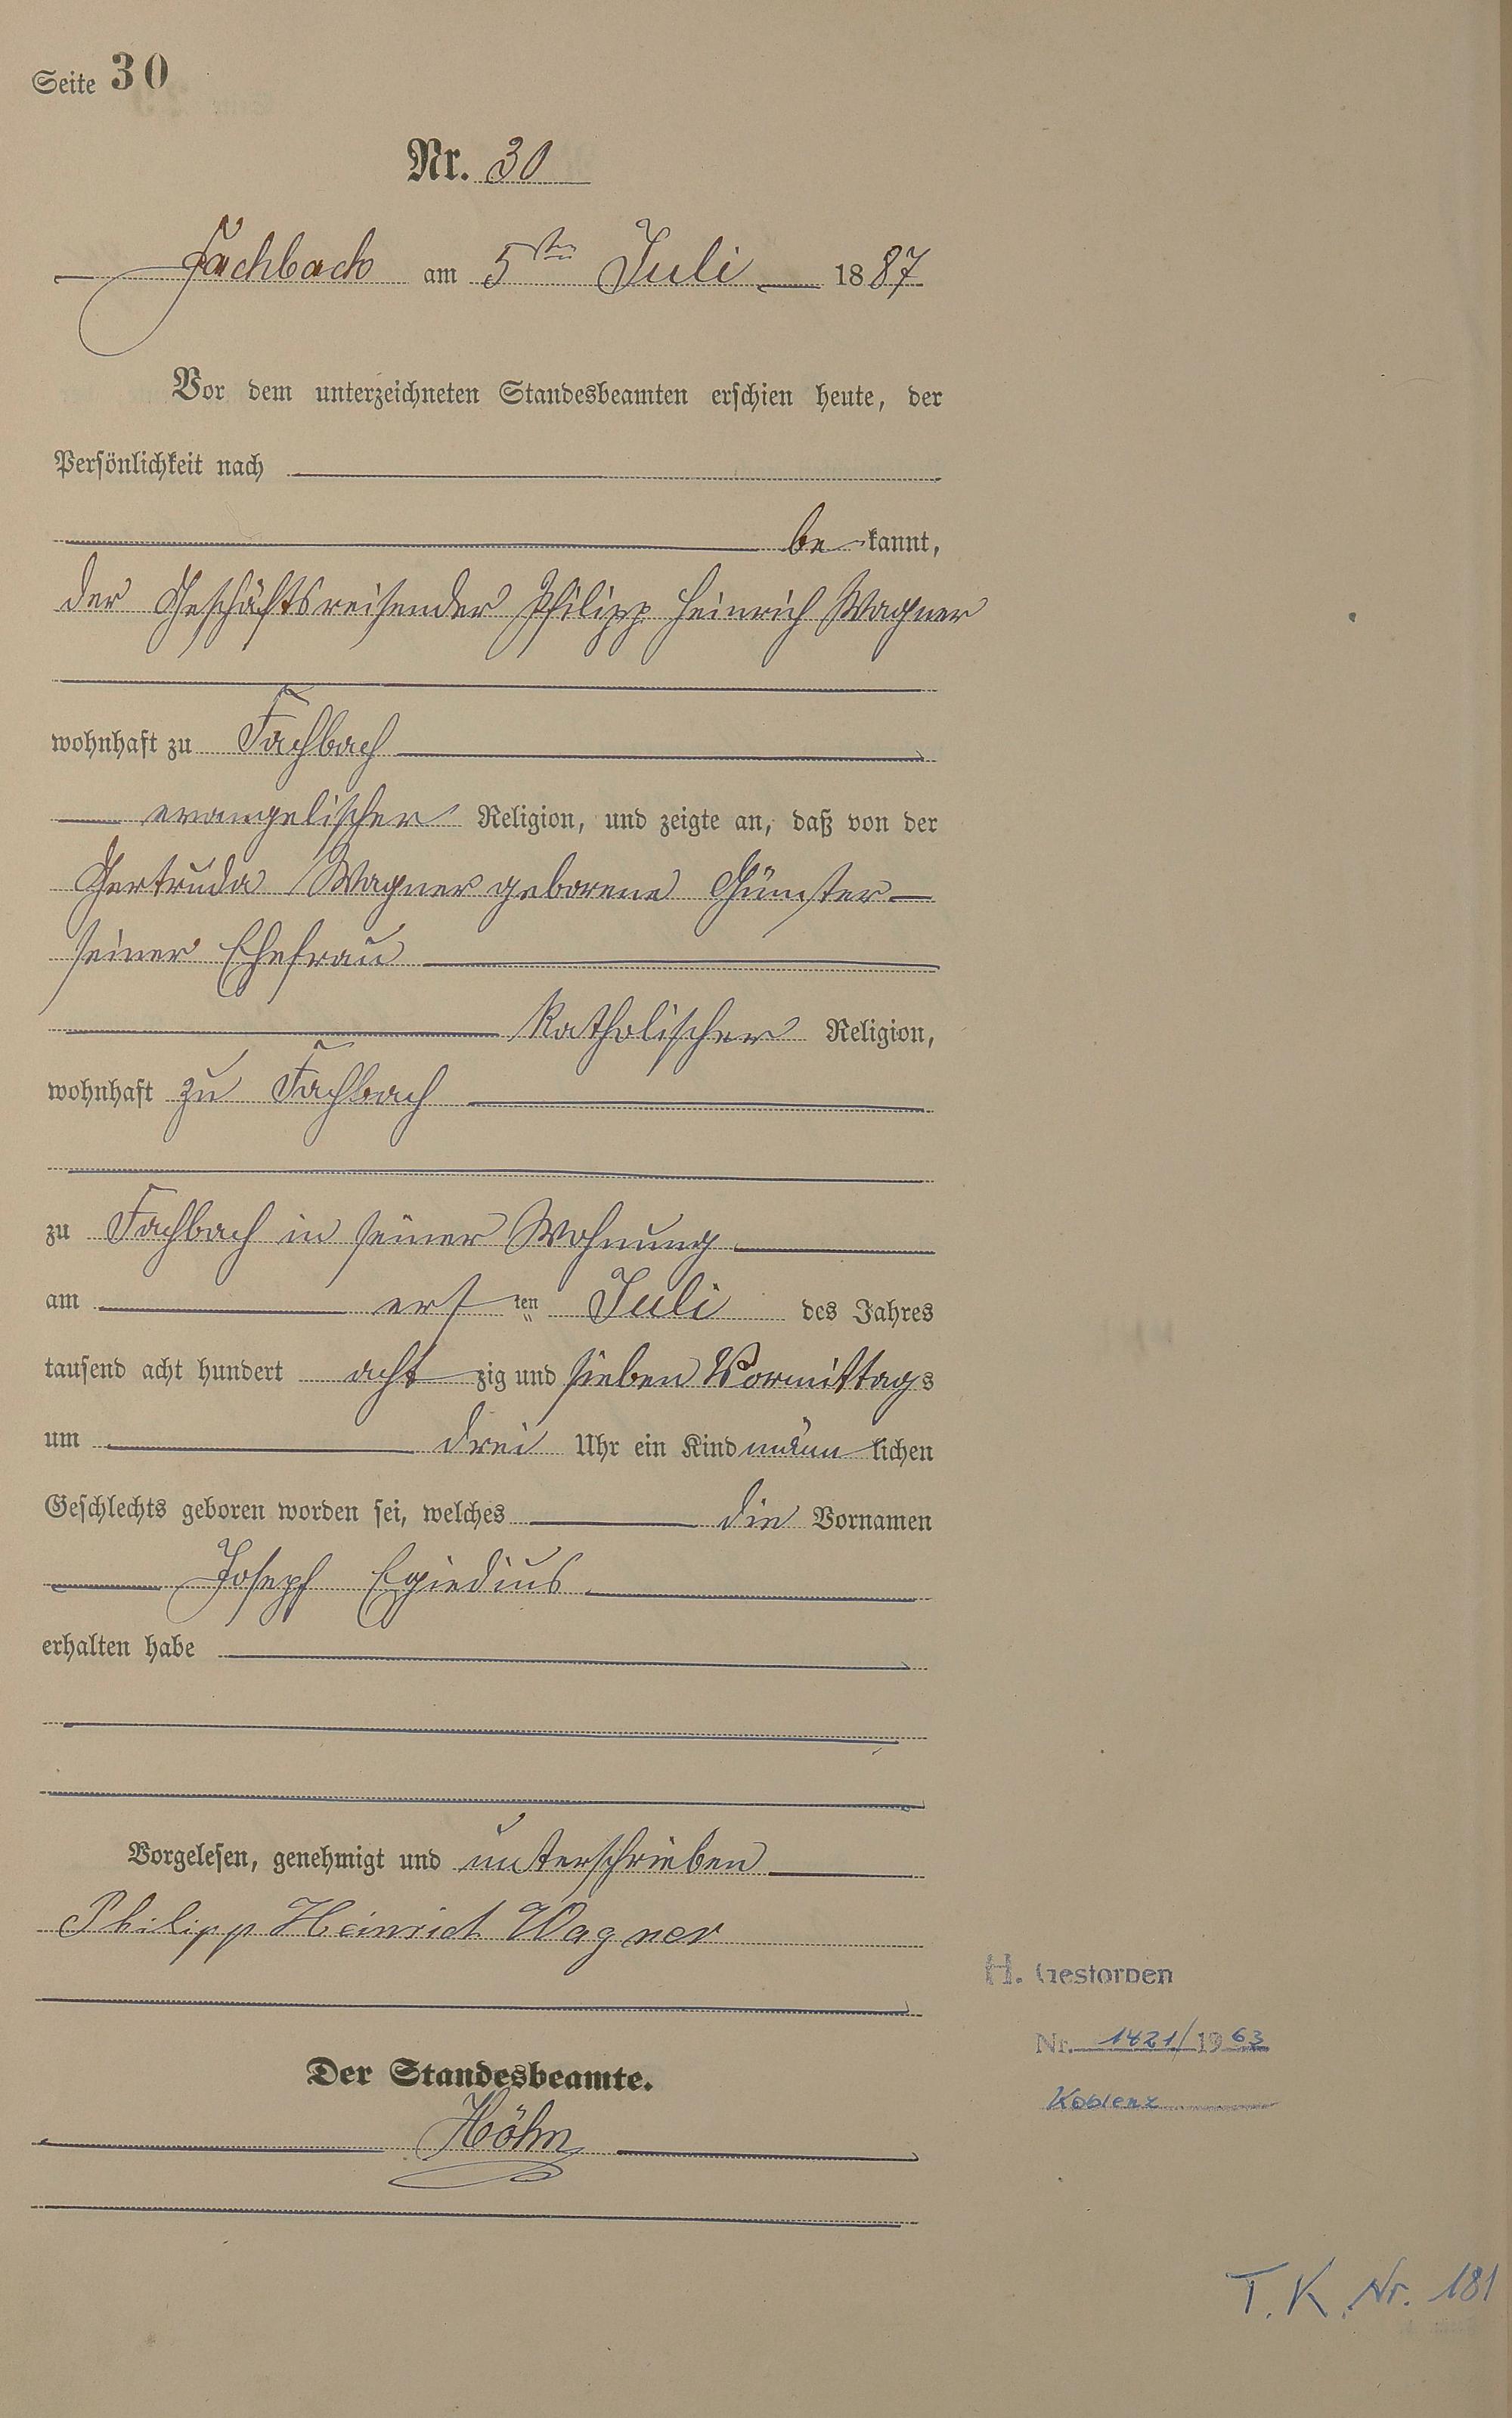 Seite 30
Nr. 30
Fachbach am 5ten Juli 1887
Vor dem unterzeichneten Standesbeamten erschien heute, der
Persönlichkeit nach
be kannt,
der Geschäftsreisender Philipp Heinrich Wagner
wohnhaft zu Fachbach
evangelischer Religion, und zeigte an, daß von der
Gertruda Wagner geborene Günster
seiner Ehefrau
katholischer Religion,
wohnhaft zu Fachbach
zu Fachbach in seiner Wohnung
am ersten Juli des Jahres
tausend acht hundert acht zig und sieben Vormittags
um drei Uhr ein Kind männ lichen
Geschlechts geboren worden sei, welches die Vornamen
Joseph Egiedius
erhalten habe
Vorgelesen, genehmigt und unterschrieben
Philipp Heinrich Wagner
H. Gestorben
Nr. 1421/1963
Koblenz
Der Standesbeamte.
Höhn
T. K. Nr. 181